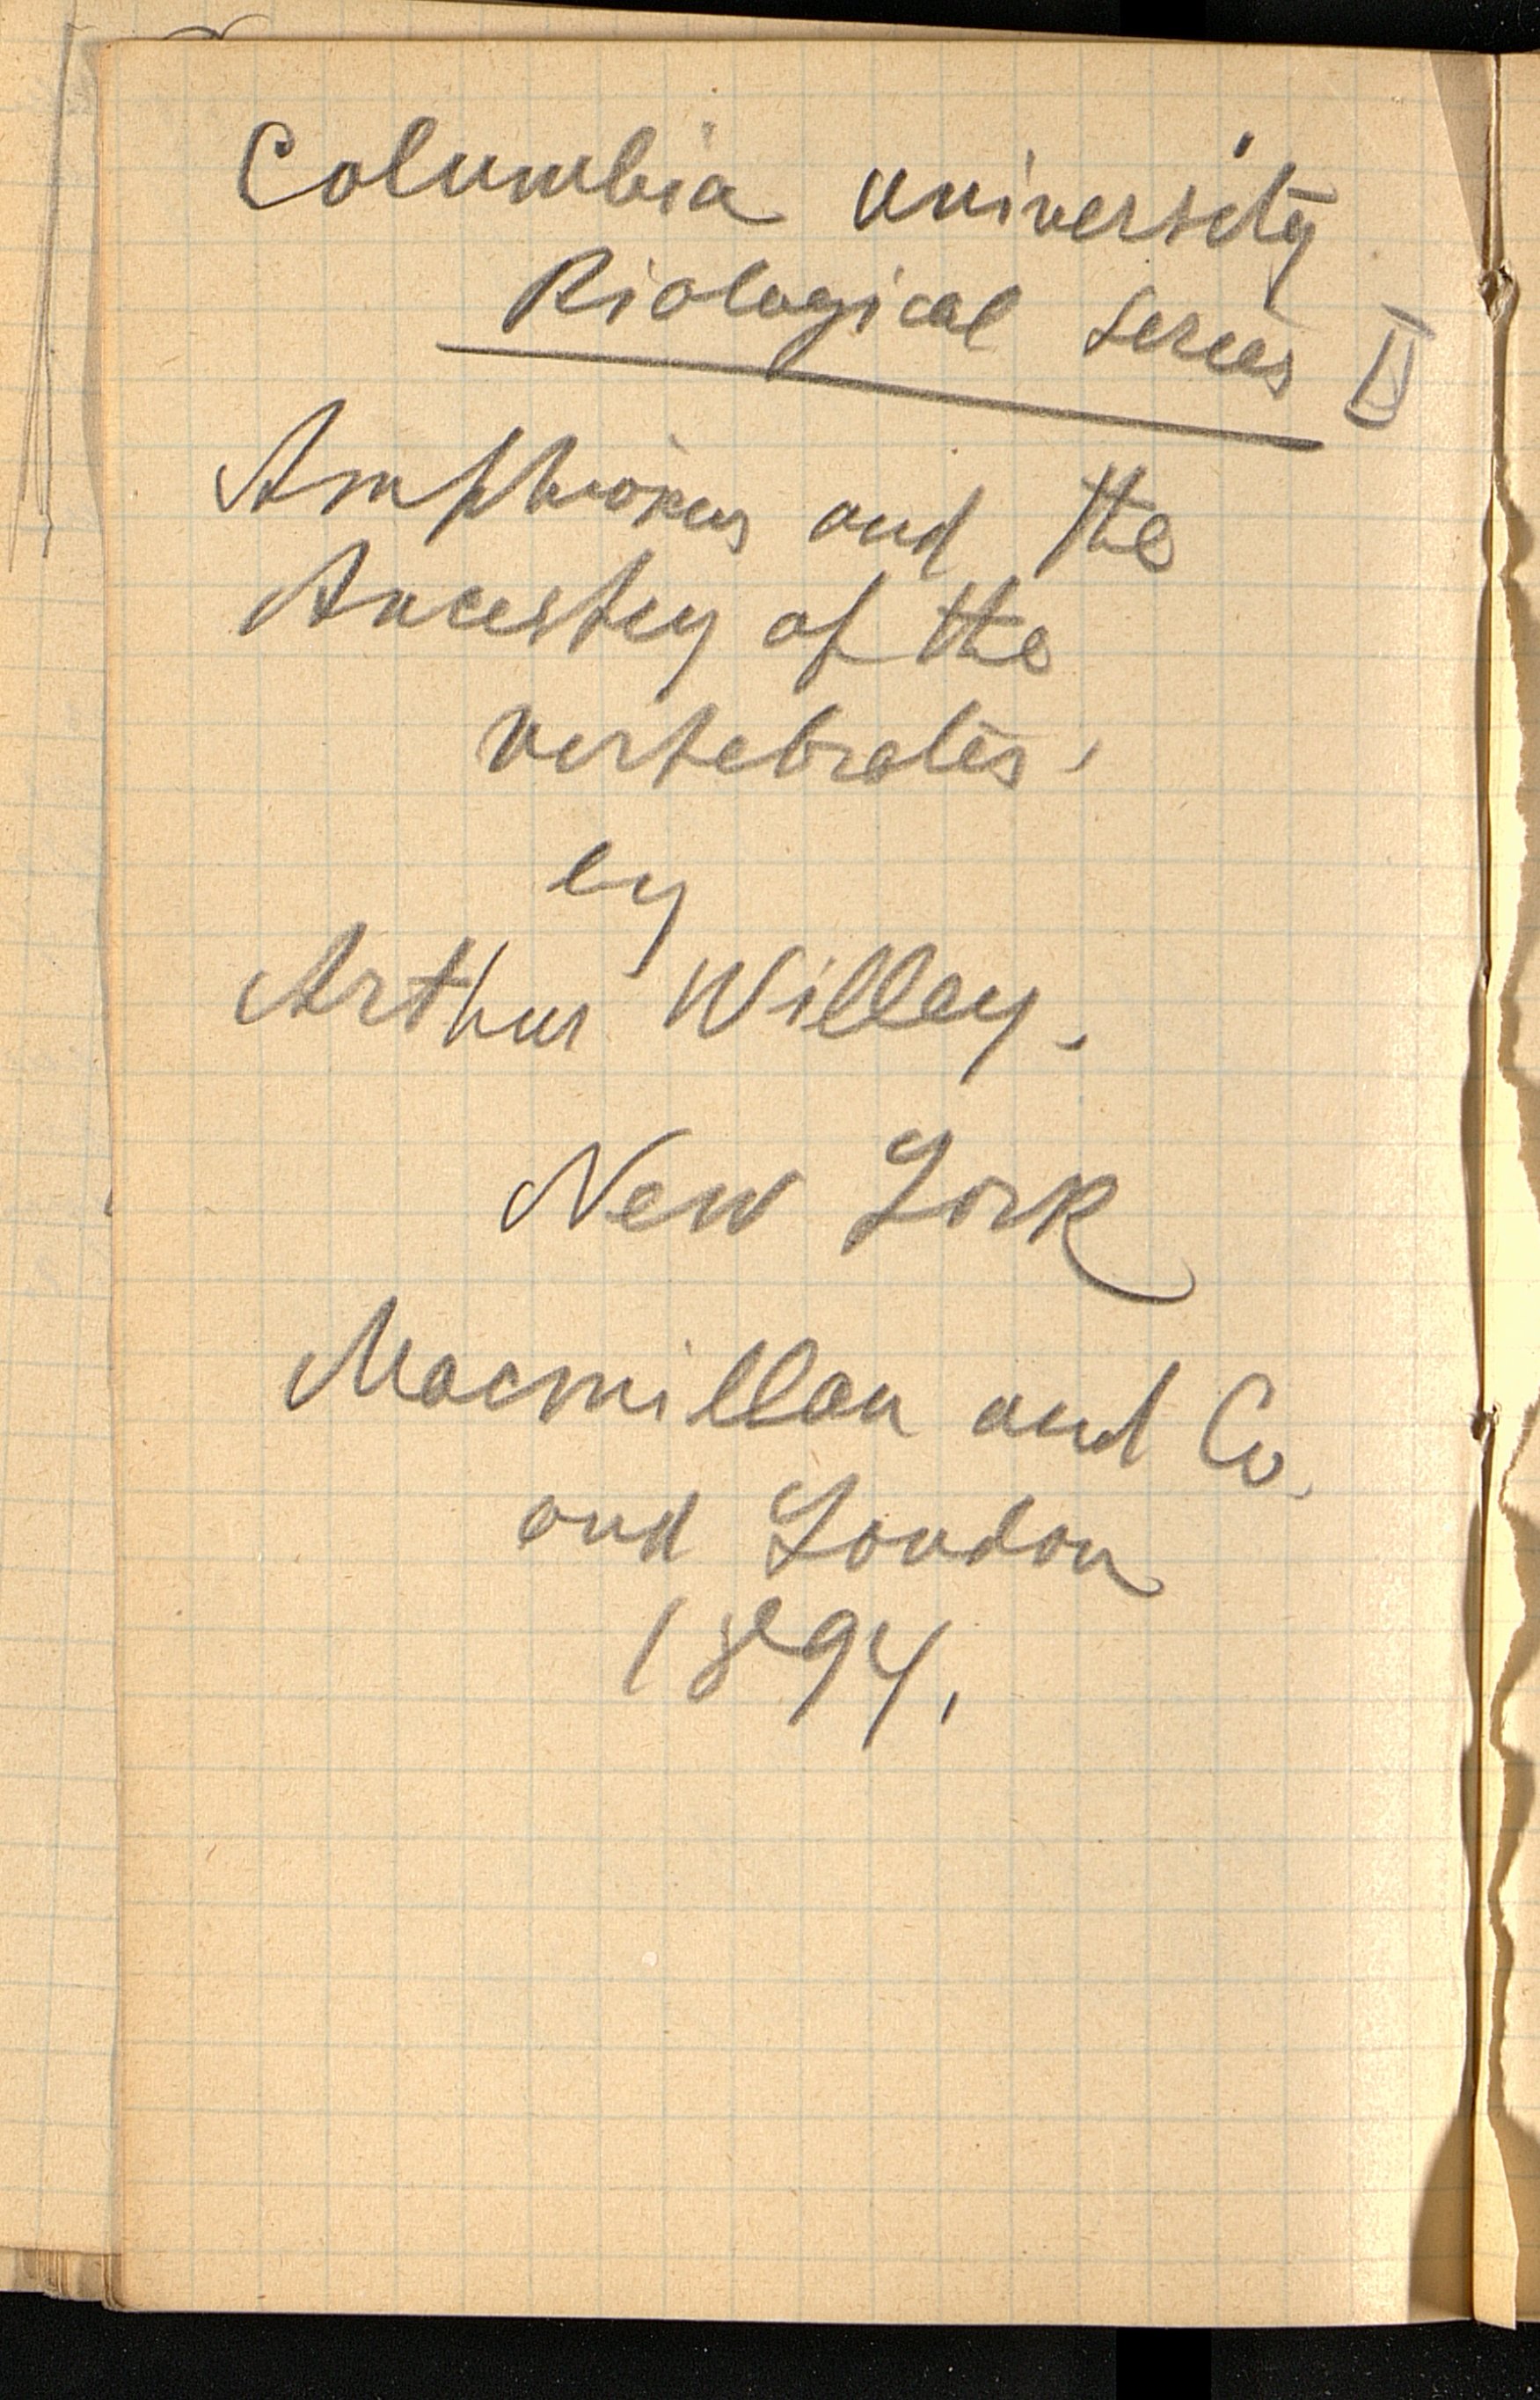 Columbia University
Biological Series II
Amphioxus and the
Ancestry of the
vertebrates.
by
Arthur Willey.
New York
Macmillan and Co.
and London
1894.